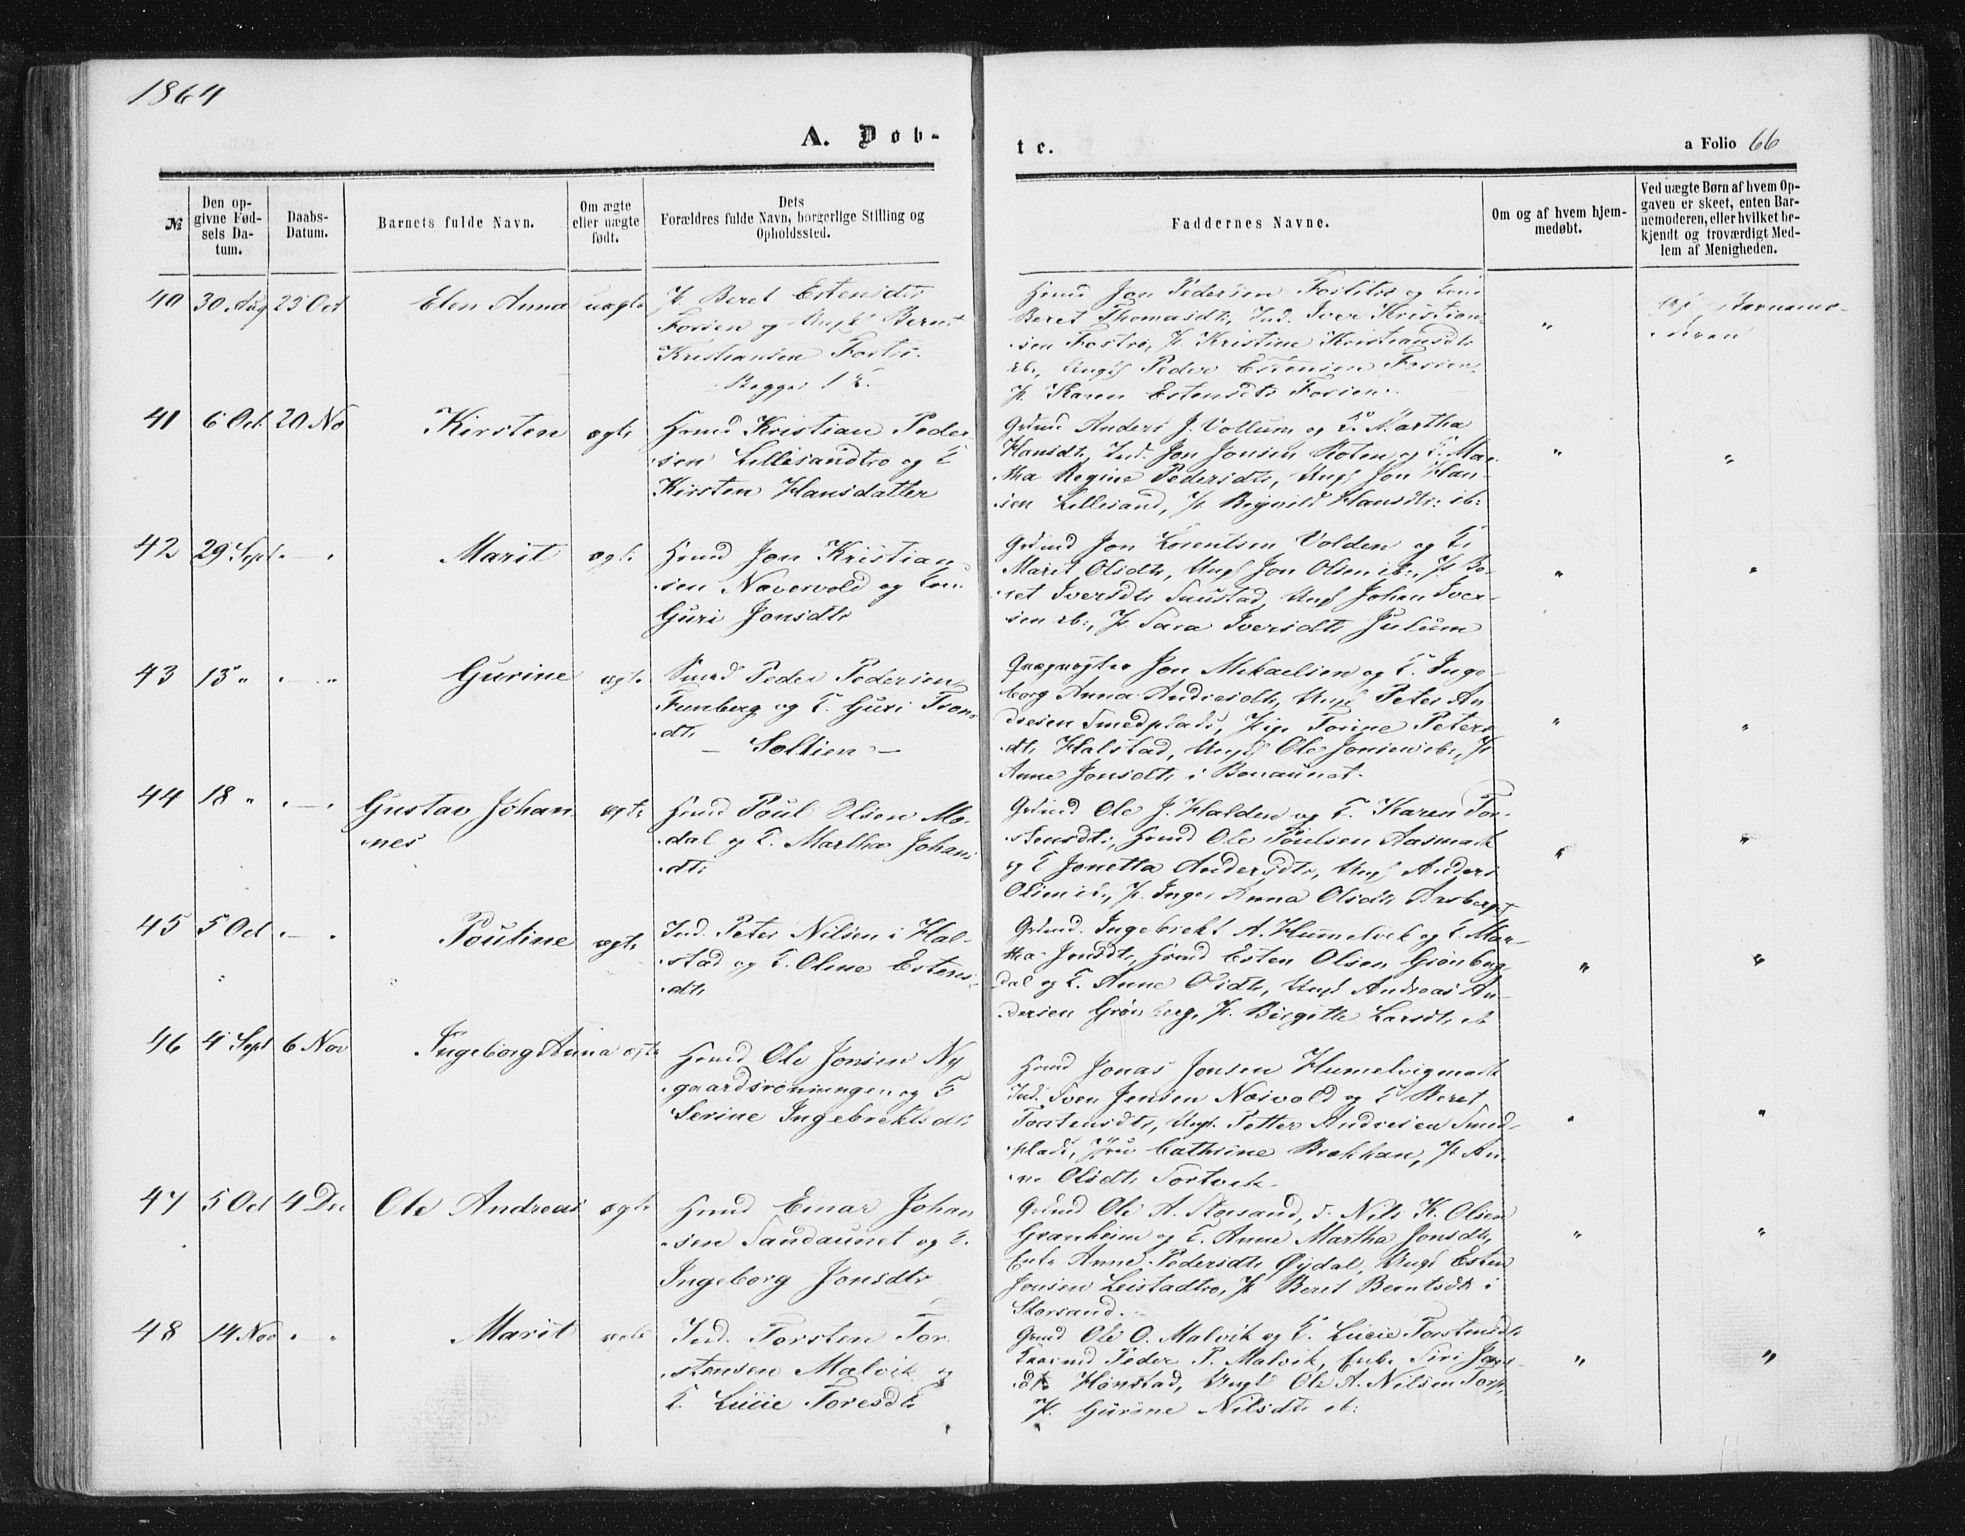 1864
A. Døb-
te.
a Folio 66
№
Den op-
givne Fød-
sels Da-
tum.
Daabs-
Datum.
Barnets fulde Navn.
Om ægte
eller uægte
født.
Dets
Forældres fulde Navn, borgerlige Stilling og
Opholdssted.
Faddernes Navne.
Om og af hvem hjem-
medøbt.
Ved uægte Børn af hvem Op-
gaven er skeet, enten Bar-
nemoderen, eller hvilket be-
kjendt og troværdigt Med-
lem af Menigheden.
40 30 Aug 23 Oct Elen Anna uægte P. Beret Estensdtr
Forsen og Ungk Bernt
Kristiansen Fostr.
Begges 1 F.
Hmd Jon Pedersen og Kone
Beret Thomasdtr, Ind. Iver Kristian-
sen Fostrø, P. Kristine Kristiansdtr
ib., Ungk Peder Estensen Forsen,
P. Karen Estensdtr Forsen.
"
Af Barnemo-
deren
41 6 Oct 20 No Kirsten ægte Hmd Kristian Peder-
sen Lillesandtrø og K
Kirsten Hansdatter
Grbmd Anders J. Vollum og K. Martha
Hansdtr, Ind. Jon Jonsen Roten og K. Mar-
tha Regine Pedersdtr, Ungk Jon Han-
sen Lillesand, P. Ragnild Hansdtr ib:
"
"
42 29 Sept " — " Marit ægte Hmd Jon Kristian-
sen Nævervold og Kone
Guri Jonsdtr
Grbmd Jon Lorentsen Volden og K.
Maret Olsdtr, Ungk Jon Olsen ib:, P. Be-
ret Iversdtr Saustad, Ungk Johan Iver-
sen ib:, P. Sara Iversdtr Julum
"
"
43 13 " " — " Gurine ægte Smed Peder Pedersen
Funberg og K. Guri Trons-
dtr
— Soltien —
Jon Mikaelsen og K. Inge-
borg Anna Andreasdtr, Ungk Peter An-
dresen Smedplads, Pige Torine Peters-
dtr Halstad, Ungk Ole Jonsen ib:, P.
Anne Jonsdtr i Bonaunet.
"
"
44 18 " " — " Gustav Johan-
nes
ægte Hmd Poul Olsen Mo-
dal og K. Martha Johans-
dtr
Grbmd Ole J. Halden og K. Karen Tor-
stensdtr, Hmd Ole Poulsen Aasmark
og K Jonetta Andersdtr, Ungk Anders
Olsen ib, P. Inger Anna Olsdtr Aasberget
"
"
45 5 Oct " — " Poutine ægte Ind. Peter Nilsen i Hal-
stad og K. Oline Estens-
dtr
Grbmd. Ingebrekt A. Hummelvik og K. Mar-
tha Jonsdtr, Hmd Esten Olsen Grønberg
dal og K. Anne Olsdtr, Ungk Andreas An-
dersen Grønberg, P. Birgitte Larsdtr ib
"
"
46 4 Sept 6 Nov Ingeborg Anna ægte Hmd Ole Jonsen Ny-
gaardsrønningen og K
Serine Ingebrektsdtr
Hmd Jonas Jonsen Humelvigmark
Ind. Sven Jensen Næsvold og K Beret
Torstensdtr, Ungk Petter Andresen Smed-
plads, Fru Cathrine Brækkan, P. An-
ne Olsdtr Torvik
"
"
47 5 Oct 4 Dec Ole Andreas ægte Hmd Einar Johan-
sen Sandaunet og K.
Ingeborg Jonsdtr
Grbmd Ole A. Storsand, I. Nils K. Olsen
Granheim og K. Anne Martha Jonsdtr,
Enke Anne Pedersdtr Øydal, Ungk Esten
Jonsen Leistadtrø, P. Beret Berntsdtr i
Storsand.
"
"
48 14 Nov " — " Marit ægte Ind. Torsten Tor-
stensen Malvik og
K. Lucie Toresdtr
Grbmd Ole O. Malvik og K. Lucie Torstensdtr
Peder P. Malvik, Enke Siri Jons-
dtr Hønstad, Ungk Ole A. Nilsen Torp,
P. Gurine Nilsdtr ib:
"
"